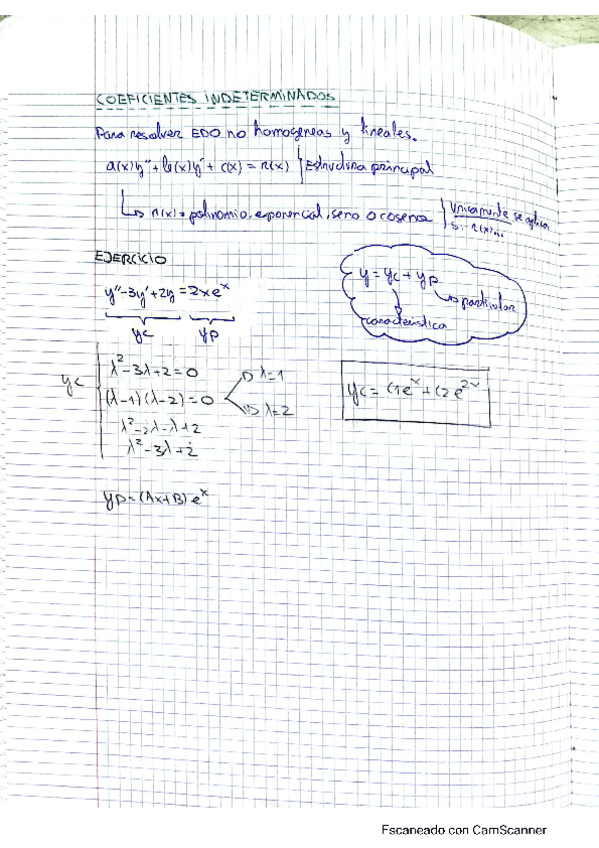 COEFICIENTES INDETERMINADOS
Para resolver EDO no homogeneas y lineales.
a(x)y''+b(x)y'+c(x)=r(x) } Estructura principal
↳ r(x)=polinomio, exponencial, seno o coseno } Unicamente se aplica
si r(x)...
EJERCICIO
y''-3y'+2y=2xeˣ
yc yp
y=yc+yp
↳ particular
caracteristica
yc
λ²-3λ+2=0
(λ-1)(λ-2)=0
λ=1
λ=2
λ²-2λ-λ+2
λ²-3λ+2
yc=C1eˣ+C2e²ˣ
yp=(Ax+B)eˣ
Escaneado con CamScanner